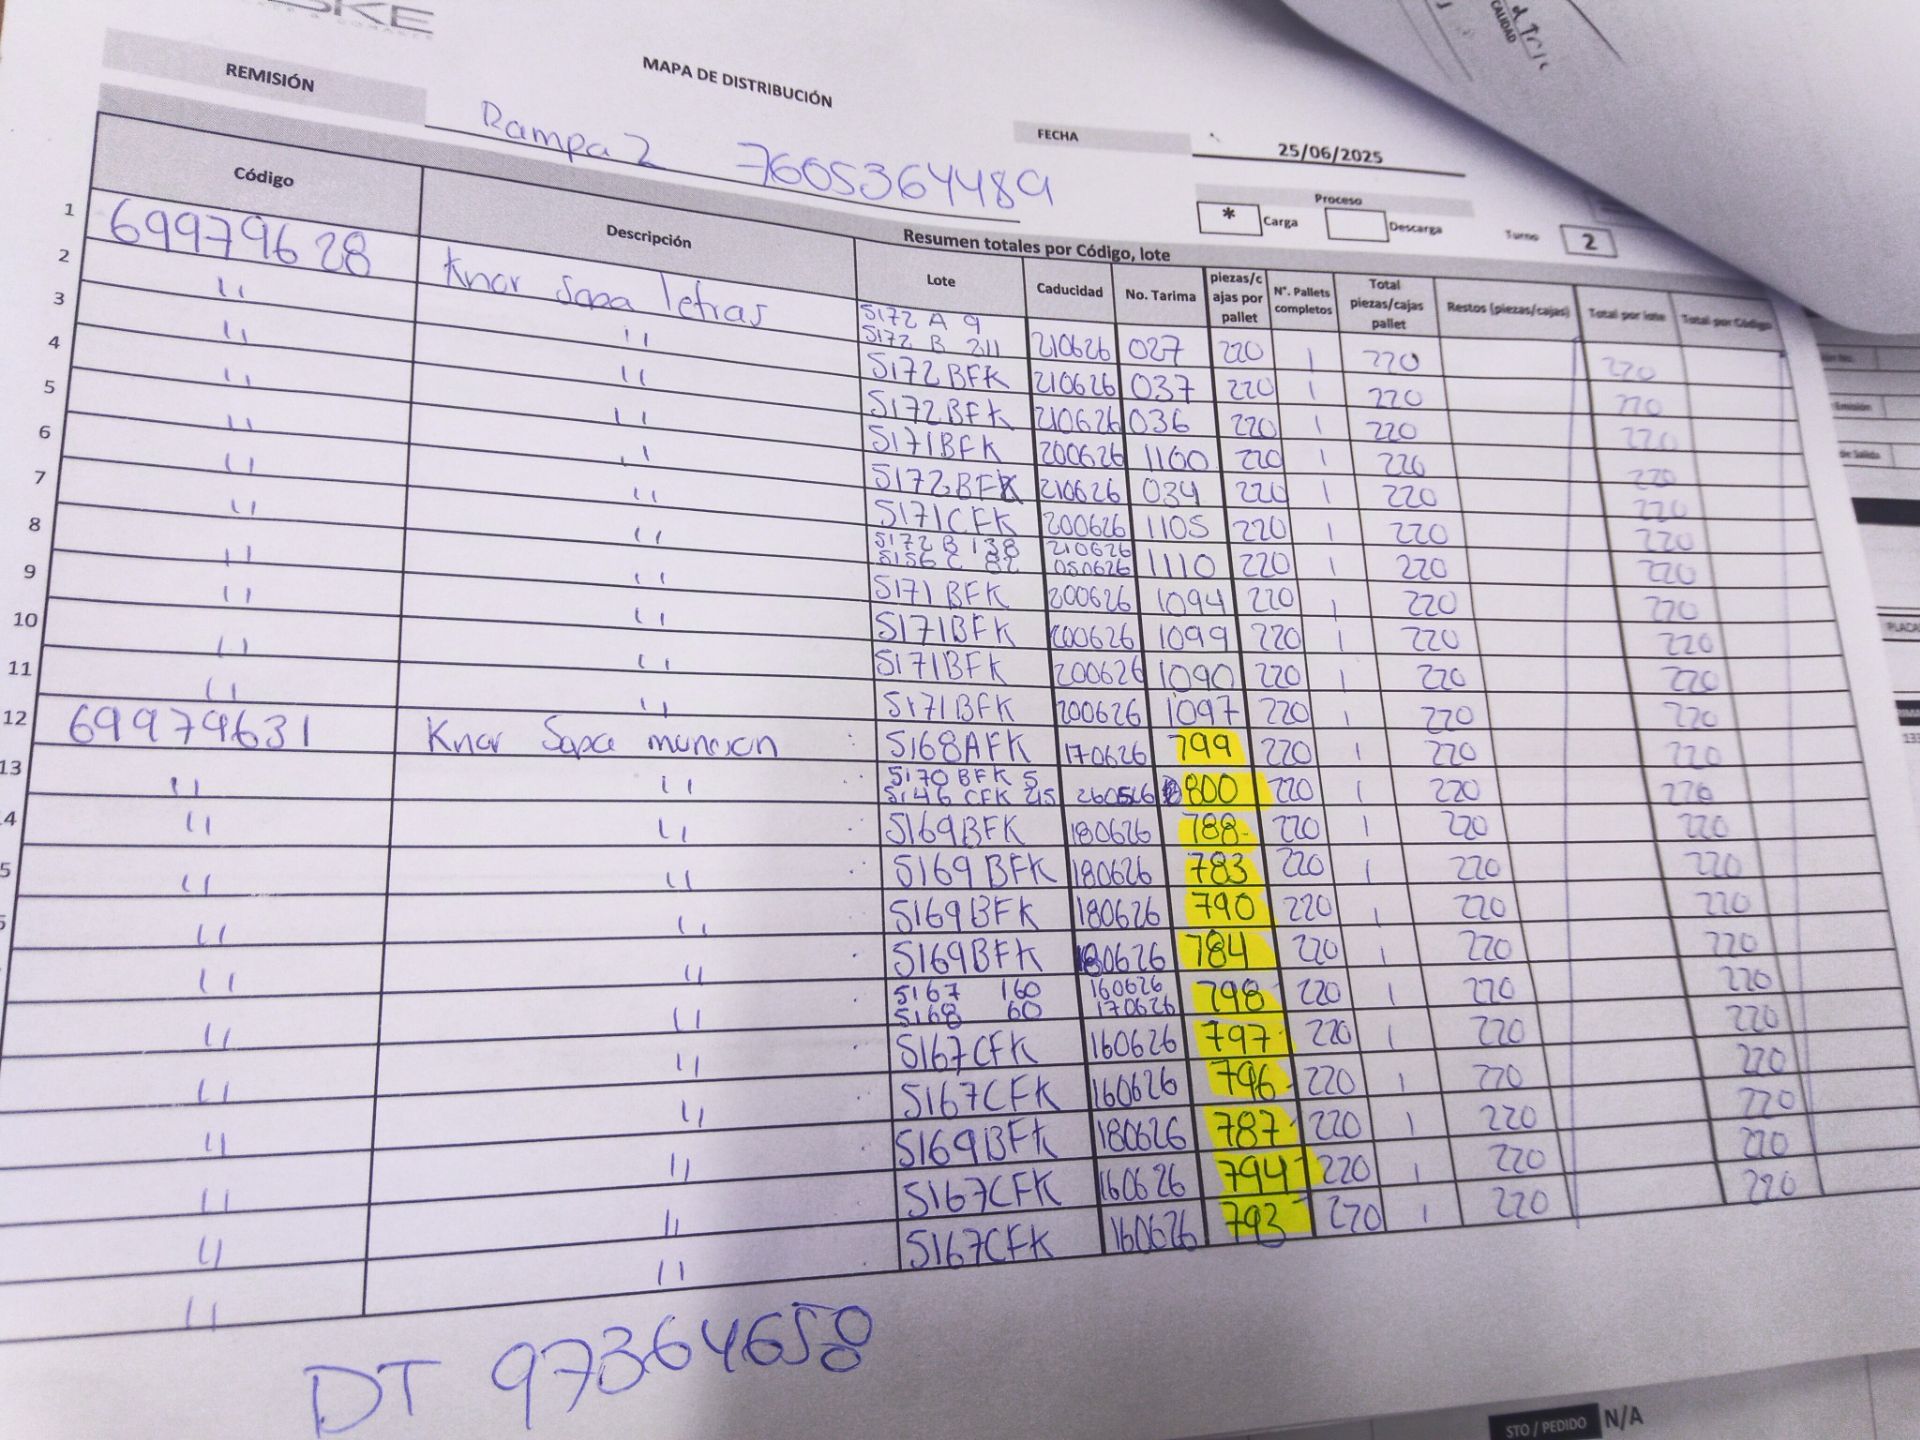 MAPA DE DISTRIBUCIÓN
REMISIÓN
Rampa 2 7605364489
FECHA 25/06/2025
Proceso
* Carga Descarga Turno 2
Resumen totales por Código, lote
Código Descripción Lote Caducidad No. Tarima piezas/cajas por pallet N°. Pallets completos Total piezas/cajas pallet Restos (piezas/cajas) Total por lote Total por Código
1 69979628 Knor Sopa letras 5172 A 9
5172 B 211 210626 027 220 1 220 220
2 " " 5172BFK 210626 037 220 1 220 220
3 " " 5172BFK 210626 036 220 1 220 220
4 " " 5171BFK 200626 1100 220 1 220 220
5 " " 5172BFK 210626 034 220 1 220 220
6 " " 5171CFK 200626 1105 220 1 220 220
7 " " 5172 B 138 210626
5156 C 82 050626 1110 220 1 220 220
8 " " 5171BFK 200626 1094 220 1 220 220
9 " " 5171BFK 200626 1099 220 1 220 220
10 " " 5171BFK 200626 1090 220 1 220 220
11 " " 5171BFK 200626 1097 220 1 220 220
12 69979631 Knor Sopa municion 5168AFK 170626 799 220 1 220 220
13 " " 5170 BFK 5
5146 CFK 215 260526 800 220 1 220 220
4 " " 5169BFK 180626 788 220 1 220 220
5 " " 5169BFK 180626 783 220 1 220 220
" " 5169BFK 180626 790 220 1 220 220
" " 5169BFK 180626 784 220 1 220 220
" " 5167 160 160626
5168 60 170626 798 220 1 220 220
" " 5167CFK 160626 797 220 1 220 220
" " 5167CFK 160626 796 220 1 220 220
" " 5169BFK 180626 787 220 1 220 220
" " 5167CFK 160626 794 220 1 220 220
" " 5167CFK 160626 793 220 1 220 220
DT 97364658
STO / PEDIDO N/A
CALIDAD
Emisión
de Salida